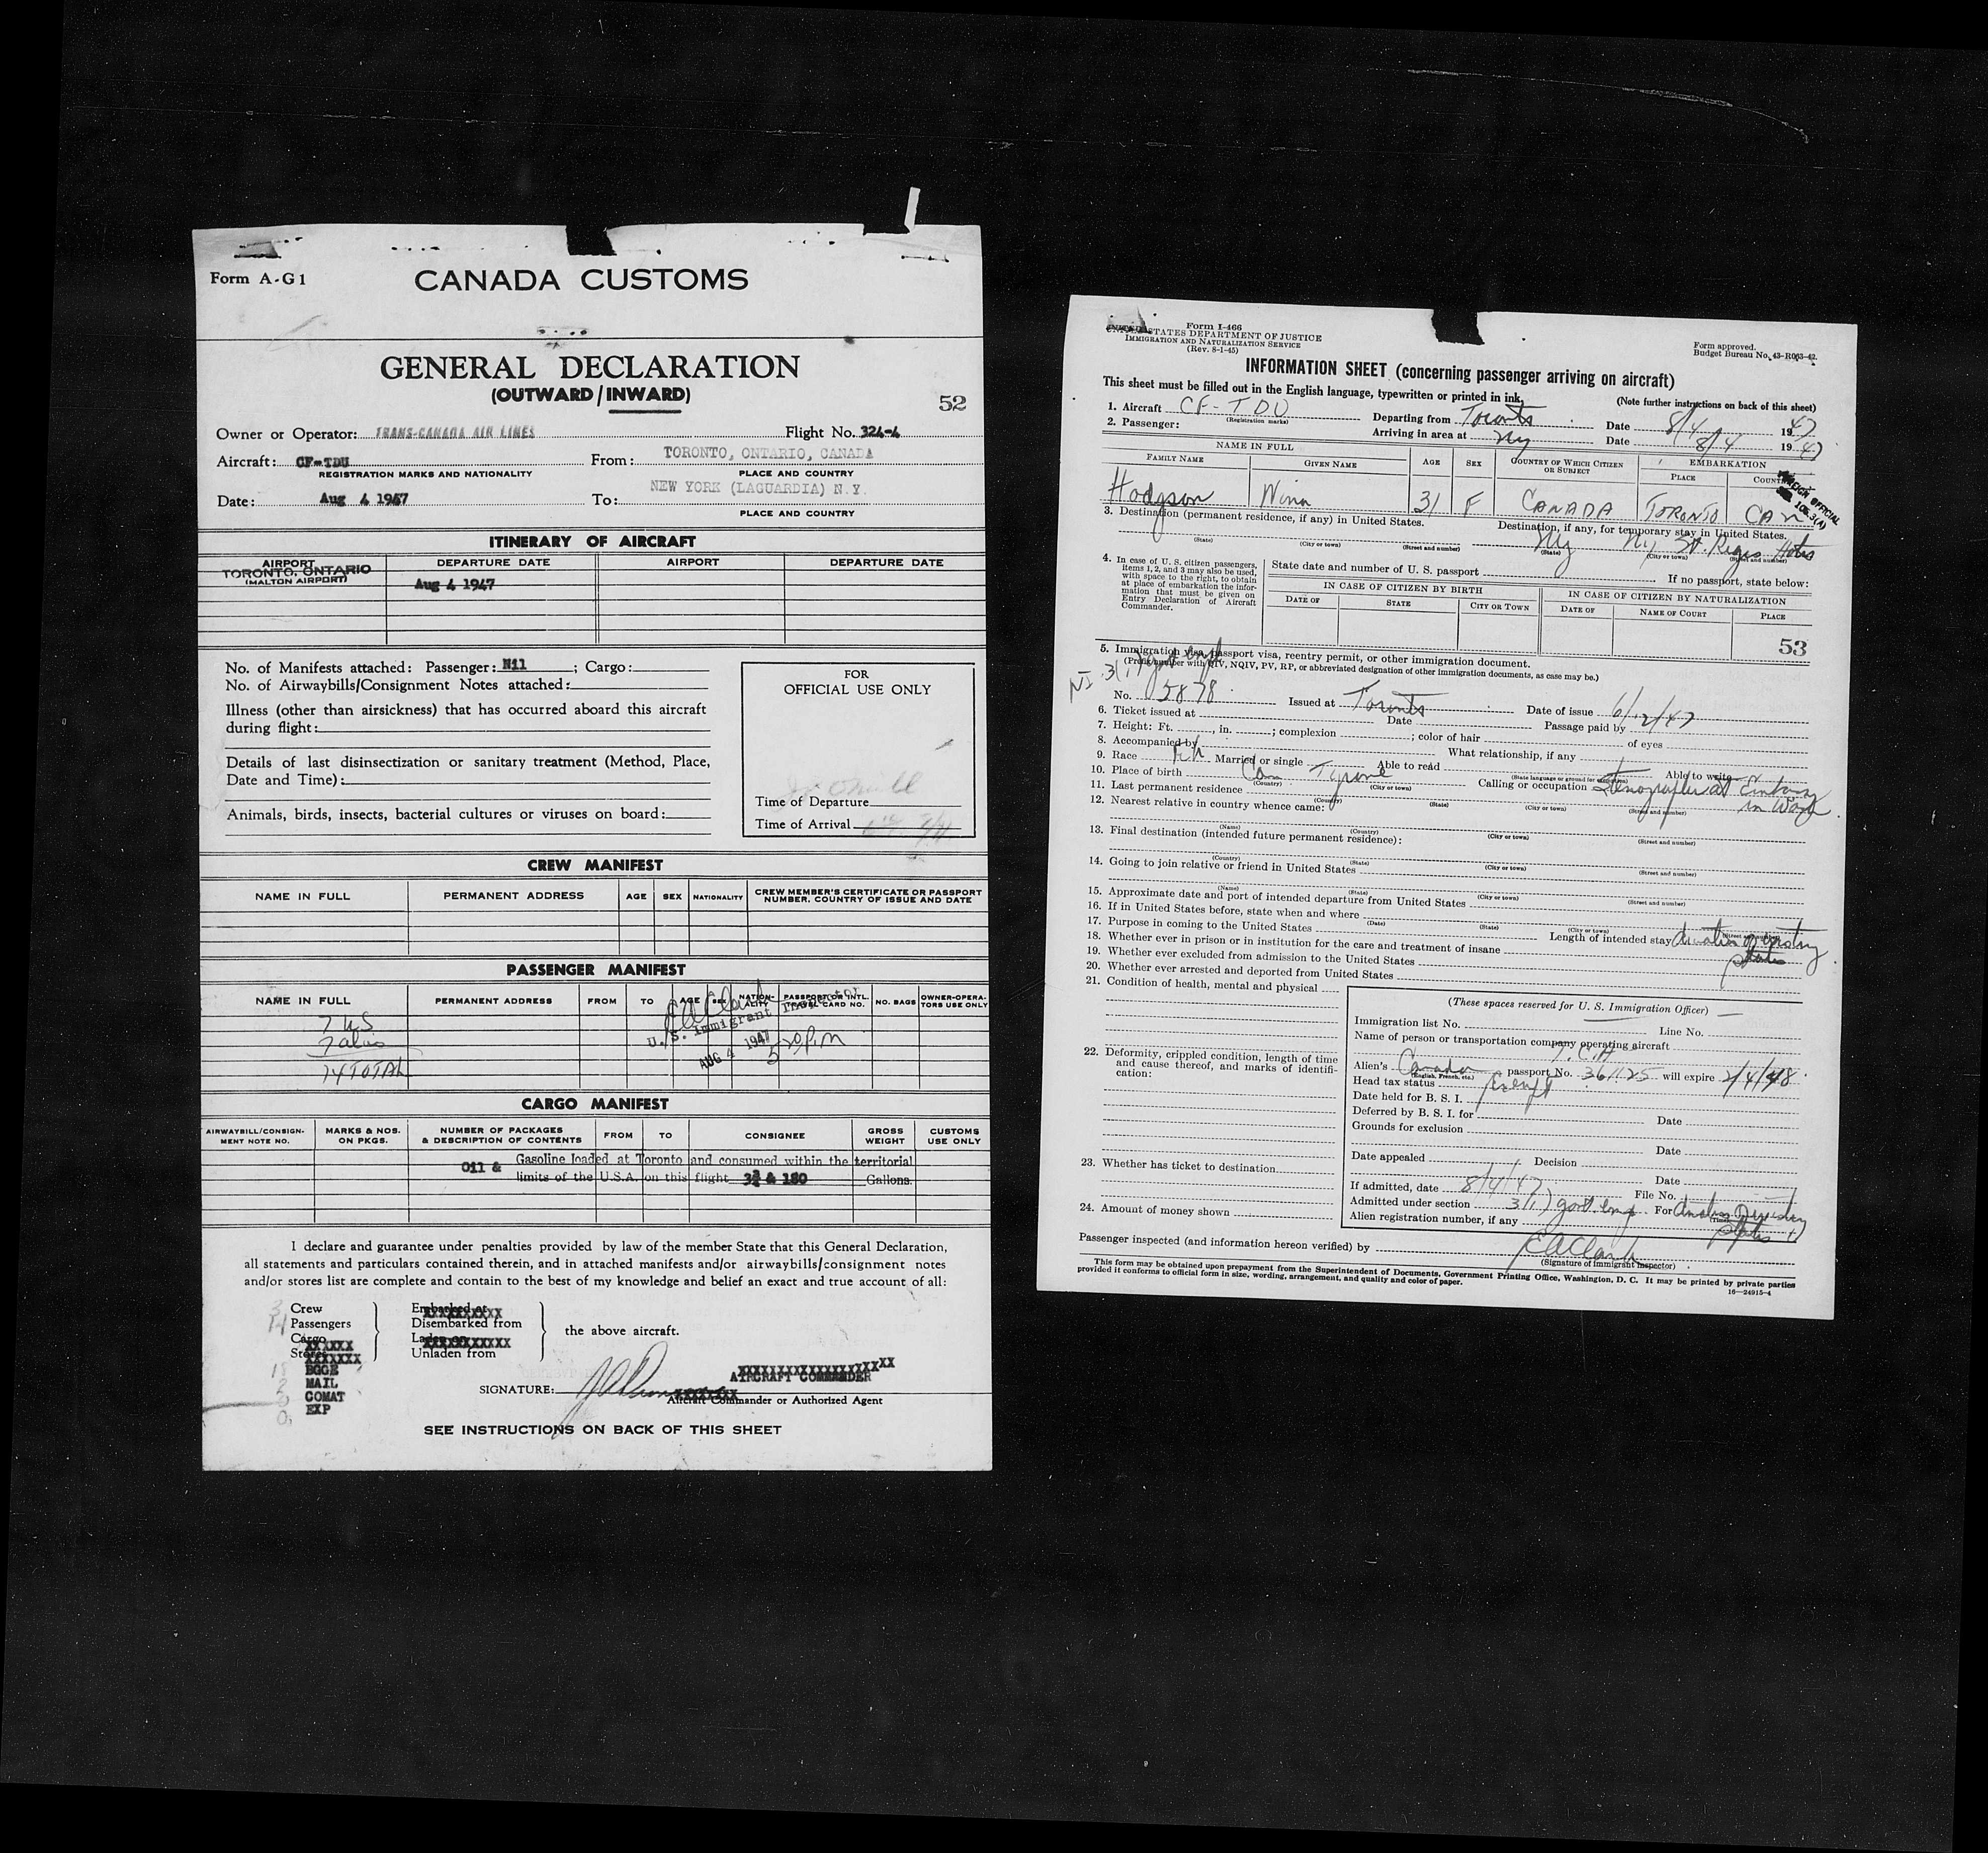 Form A-G1
CANADA CUSTOMS
GENERAL DECLARATION
(OUTWARD/INWARD)
52
Owner or Operator: TRANS-CANADA AIR LINES Flight No. 324-4
Aircraft: CF-TDU From: TORONTO, ONTARIO, CANADA
REGISTRATION MARKS AND NATIONALITY PLACE AND COUNTRY
Date: Aug 4 1947 To: NEW YORK (LAGUARDIA) N.Y.
PLACE AND COUNTRY
ITINERARY OF AIRCRAFT
AIRPORT DEPARTURE DATE AIRPORT DEPARTURE DATE
TORONTO, ONTARIO
(MALTON AIRPORT) Aug 4 1947
No. of Manifests attached: Passenger: Nil ; Cargo:
No. of Airwaybills/Consignment Notes attached:
Illness (other than airsickness) that has occurred aboard this aircraft
during flight:
Details of last disinsectization or sanitary treatment (Method, Place,
Date and Time):
Animals, birds, insects, bacterial cultures or viruses on board:
FOR
OFFICIAL USE ONLY
Time of Departure
Time of Arrival
CREW MANIFEST
NAME IN FULL PERMANENT ADDRESS AGE SEX NATIONALITY CREW MEMBER'S CERTIFICATE OR PASSPORT
NUMBER, COUNTRY OF ISSUE AND DATE
PASSENGER MANIFEST
NAME IN FULL PERMANENT ADDRESS FROM TO AGE SEX NATION-
ALITY PASSPORT OR INTL.
TRAVEL CARD NO. NO. BAGS OWNER-OPERA-
TORS USE ONLY
7 US
7 alien
14 TOTAL
U. S. Immigrant Inspector
AUG 4 1947
5 20 P.M
CARGO MANIFEST
AIRWAYBILL/CONSIGN-
MENT NOTE NO. MARKS & NOS.
ON PKGS. NUMBER OF PACKAGES
& DESCRIPTION OF CONTENTS FROM TO CONSIGNEE GROSS
WEIGHT CUSTOMS
USE ONLY
Oil & Gasoline loaded at Toronto and consumed within the territorial
limits of the U.S.A. on this flight 3¾ & 180 Gallons.
I declare and guarantee under penalties provided by law of the member State that this General Declaration,
all statements and particulars contained therein, and in attached manifests and/or airwaybills/consignment notes
and/or stores list are complete and contain to the best of my knowledge and belief an exact and true account of all:
3 Crew Embarked at
14 Passengers Disembarked from
Cargo Laden on the above aircraft.
Stores Unladen from
BGGE
MAIL
COMAT
EXP
AIRCRAFT COMMANDER
SIGNATURE:
Aircraft Commander or Authorized Agent
SEE INSTRUCTIONS ON BACK OF THIS SHEET
Form I-466
UNITED STATES DEPARTMENT OF JUSTICE
IMMIGRATION AND NATURALIZATION SERVICE
(Rev. 8-1-45)
Form approved.
Budget Bureau No. 43-R063-42.
INFORMATION SHEET (concerning passenger arriving on aircraft)
This sheet must be filled out in the English language, typewritten or printed in ink. (Note further instructions on back of this sheet)
1. Aircraft CF-TDU Departing from Toronto Date 8/4 1947
(Registration marks)
2. Passenger: Arriving in area at NY Date 8/4 1947
NAME IN FULL
FAMILY NAME GIVEN NAME AGE SEX COUNTRY OF WHICH CITIZEN
OR SUBJECT EMBARKATION
PLACE COUNTRY
FOREIGN OFFICIAL
Hodgson Nina 31 F CANADA TORONTO CAN
3. Destination (permanent residence, if any) in United States. Destination, if any, for temporary stay in United States.
NY NY St. Regis Hotel
(State) (City or town) (Street and number) (State) (City or town) (Street and number)
4. In case of U. S. citizen passengers,
items 1, 2, and 3 may also be used,
with space to the right, to obtain
at place of embarkation the infor-
mation that must be given on
Entry Declaration of Aircraft
Commander.
State date and number of U. S. passport If no passport, state below:
IN CASE OF CITIZEN BY BIRTH IN CASE OF CITIZEN BY NATURALIZATION
DATE OF STATE CITY OR TOWN DATE OF NAME OF COURT PLACE
53
5. Immigration visa, passport visa, reentry permit, or other immigration document.
(Prefix number with QIV, NQIV, PV, RP, or abbreviated designation of other immigration documents, as case may be.)
NI 3(1) govt emp
No. 5878 Issued at Toronto Date of issue 6/12/47
6. Ticket issued at Date Passage paid by
7. Height: Ft. , in. ; complexion ; color of hair of eyes
8. Accompanied by What relationship, if any
9. Race Married or single Able to read Able to write
(State language or ground for exemption)
10. Place of birth Can Tyrone Calling or occupation Stenographer at Embassy
in Wash
(Country) (City or town)
11. Last permanent residence
(Country) (State) (City or town) (Street and number)
12. Nearest relative in country whence came:
(Name) (Country) (City or town) (Street and number)
13. Final destination (intended future permanent residence):
(Country) (State) (City or town) (Street and number)
14. Going to join relative or friend in United States
(Name) (State) (City or town) (Street and number)
15. Approximate date and port of intended departure from United States
(Date) (State) (City or town) (Street and number)
16. If in United States before, state when and where
17. Purpose in coming to the United States Length of intended stay duration of existing
status
18. Whether ever in prison or in institution for the care and treatment of insane
19. Whether ever excluded from admission to the United States
20. Whether ever arrested and deported from United States
21. Condition of health, mental and physical
22. Deformity, crippled condition, length of time
and cause thereof, and marks of identifi-
cation:
23. Whether has ticket to destination
24. Amount of money shown
(These spaces reserved for U. S. Immigration Officer)
Immigration list No. Line No.
Name of person or transportation company operating aircraft
T.C.A
Alien's Canadian passport No. 361125 will expire 2/4/48
(English, French, etc.)
Head tax status Exempt
Date held for B. S. I.
Deferred by B. S. I. for Date
Grounds for exclusion
Date
Date appealed Decision
Date
If admitted, date 8/4/47 File No.
Admitted under section 3(1) govt emp For duration existing
status
(Time)
Alien registration number, if any
Passenger inspected (and information hereon verified) by EAClark
(Signature of immigrant inspector)
This form may be obtained upon prepayment from the Superintendent of Documents, Government Printing Office, Washington, D. C. It may be printed by private parties
provided it conforms to official form in size, wording, arrangement, and quality and color of paper.
16—24915-4